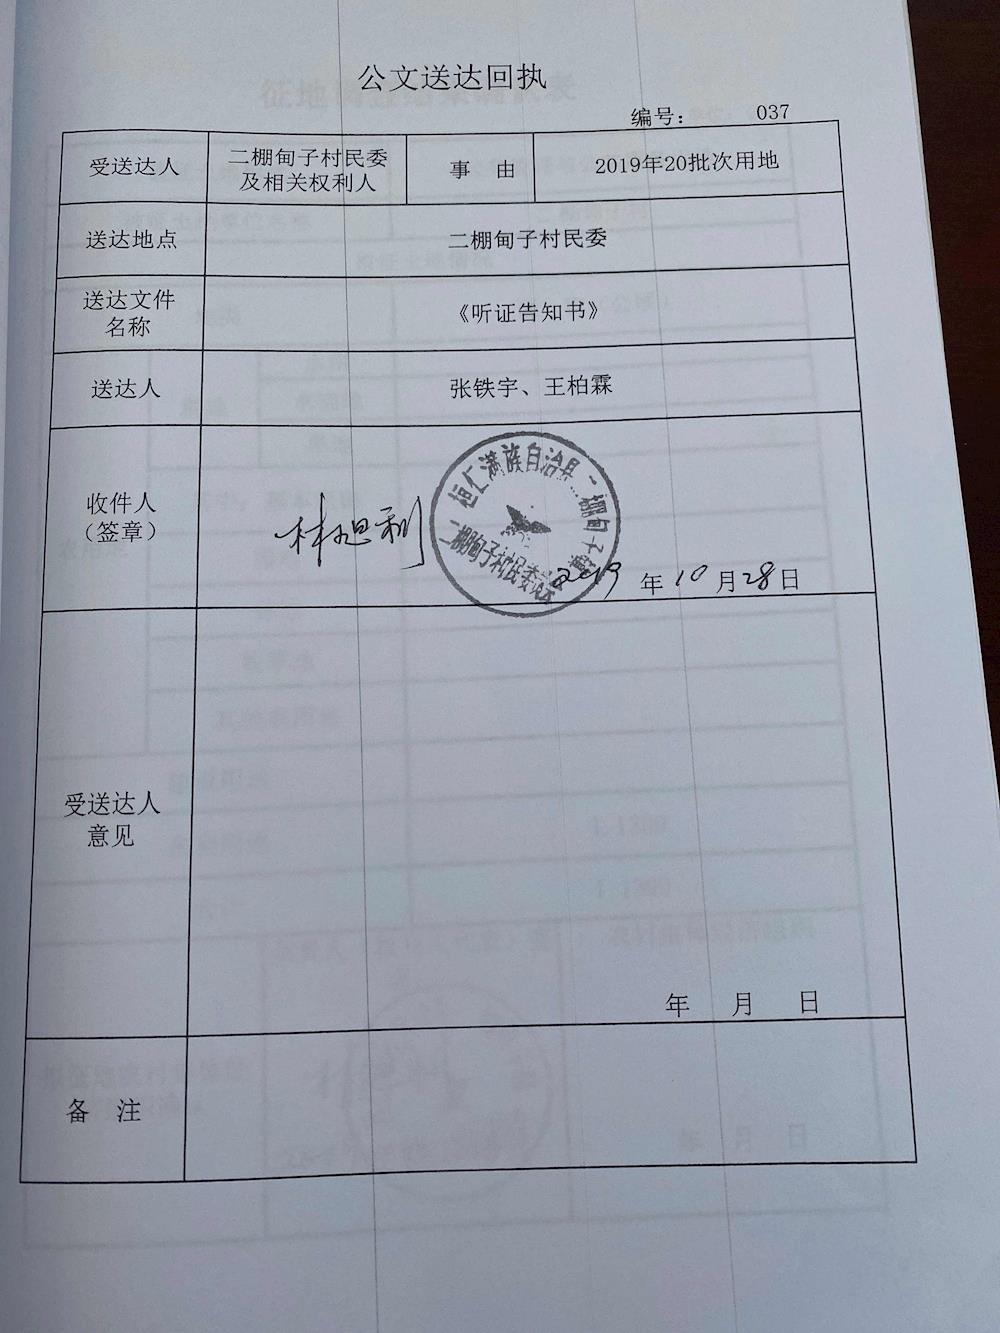 公文送达回执
编号： 037
受送达人 二棚甸子村民委及相关权利人 事 由 2019年20批次用地
送达地点 二棚甸子村民委
送达文件名称 《听证告知书》
送达人 张铁宇、王柏霖
收件人（签章）
桓仁满族自治县二棚甸子镇
二棚甸子村民委员会
2019 年 10 月 28 日
受送达人意见
年 月 日
备 注